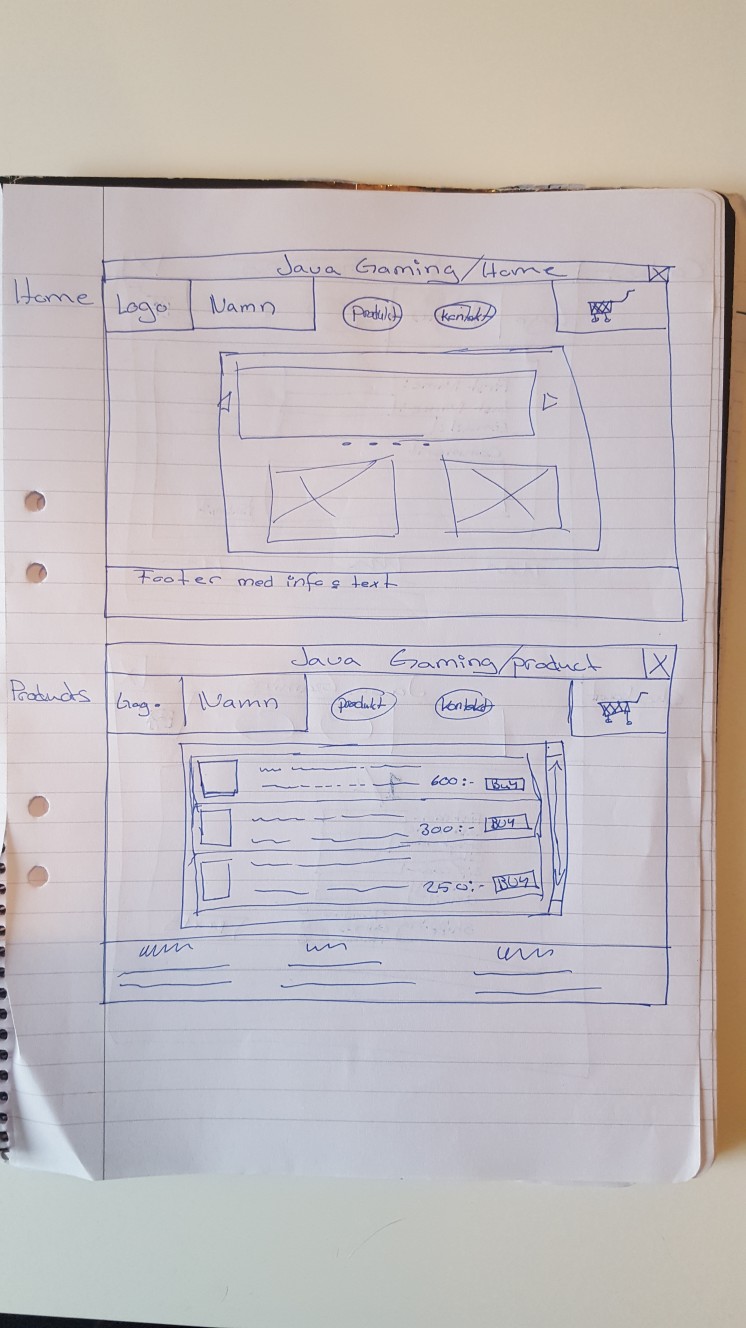 Java Gaming/Home
Home
Logo
Namn
Produkt
kontakt
Footer med info & text
Java Gaming/product
X
Products
Logo
Namn
produkt
kontakt
600:- BUY
300:- BUY
250:- BUY